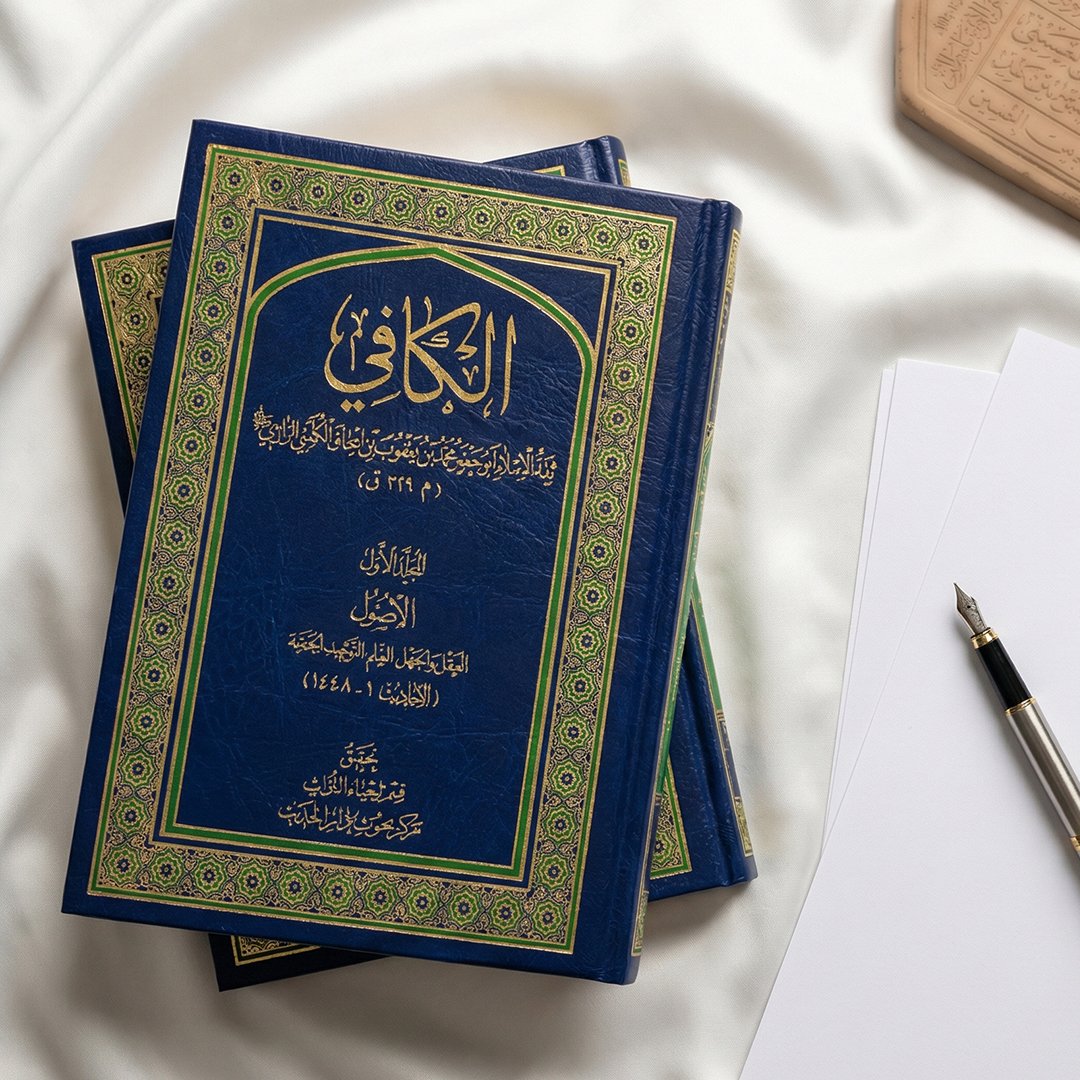 الكافي
ثقة الإسلام أبو جعفر محمد بن يعقوب بن إسحاق الكليني الرازي
(م ٣٢٩ ق)
المجلد الأول
الأصول
العقل والجهل، العلم، التوحيد، الحجة
(الأحاديث ١ - ١٤٤٨)
تحقيق
قسم إحياء التراث
مركز بحوث دار الحديث